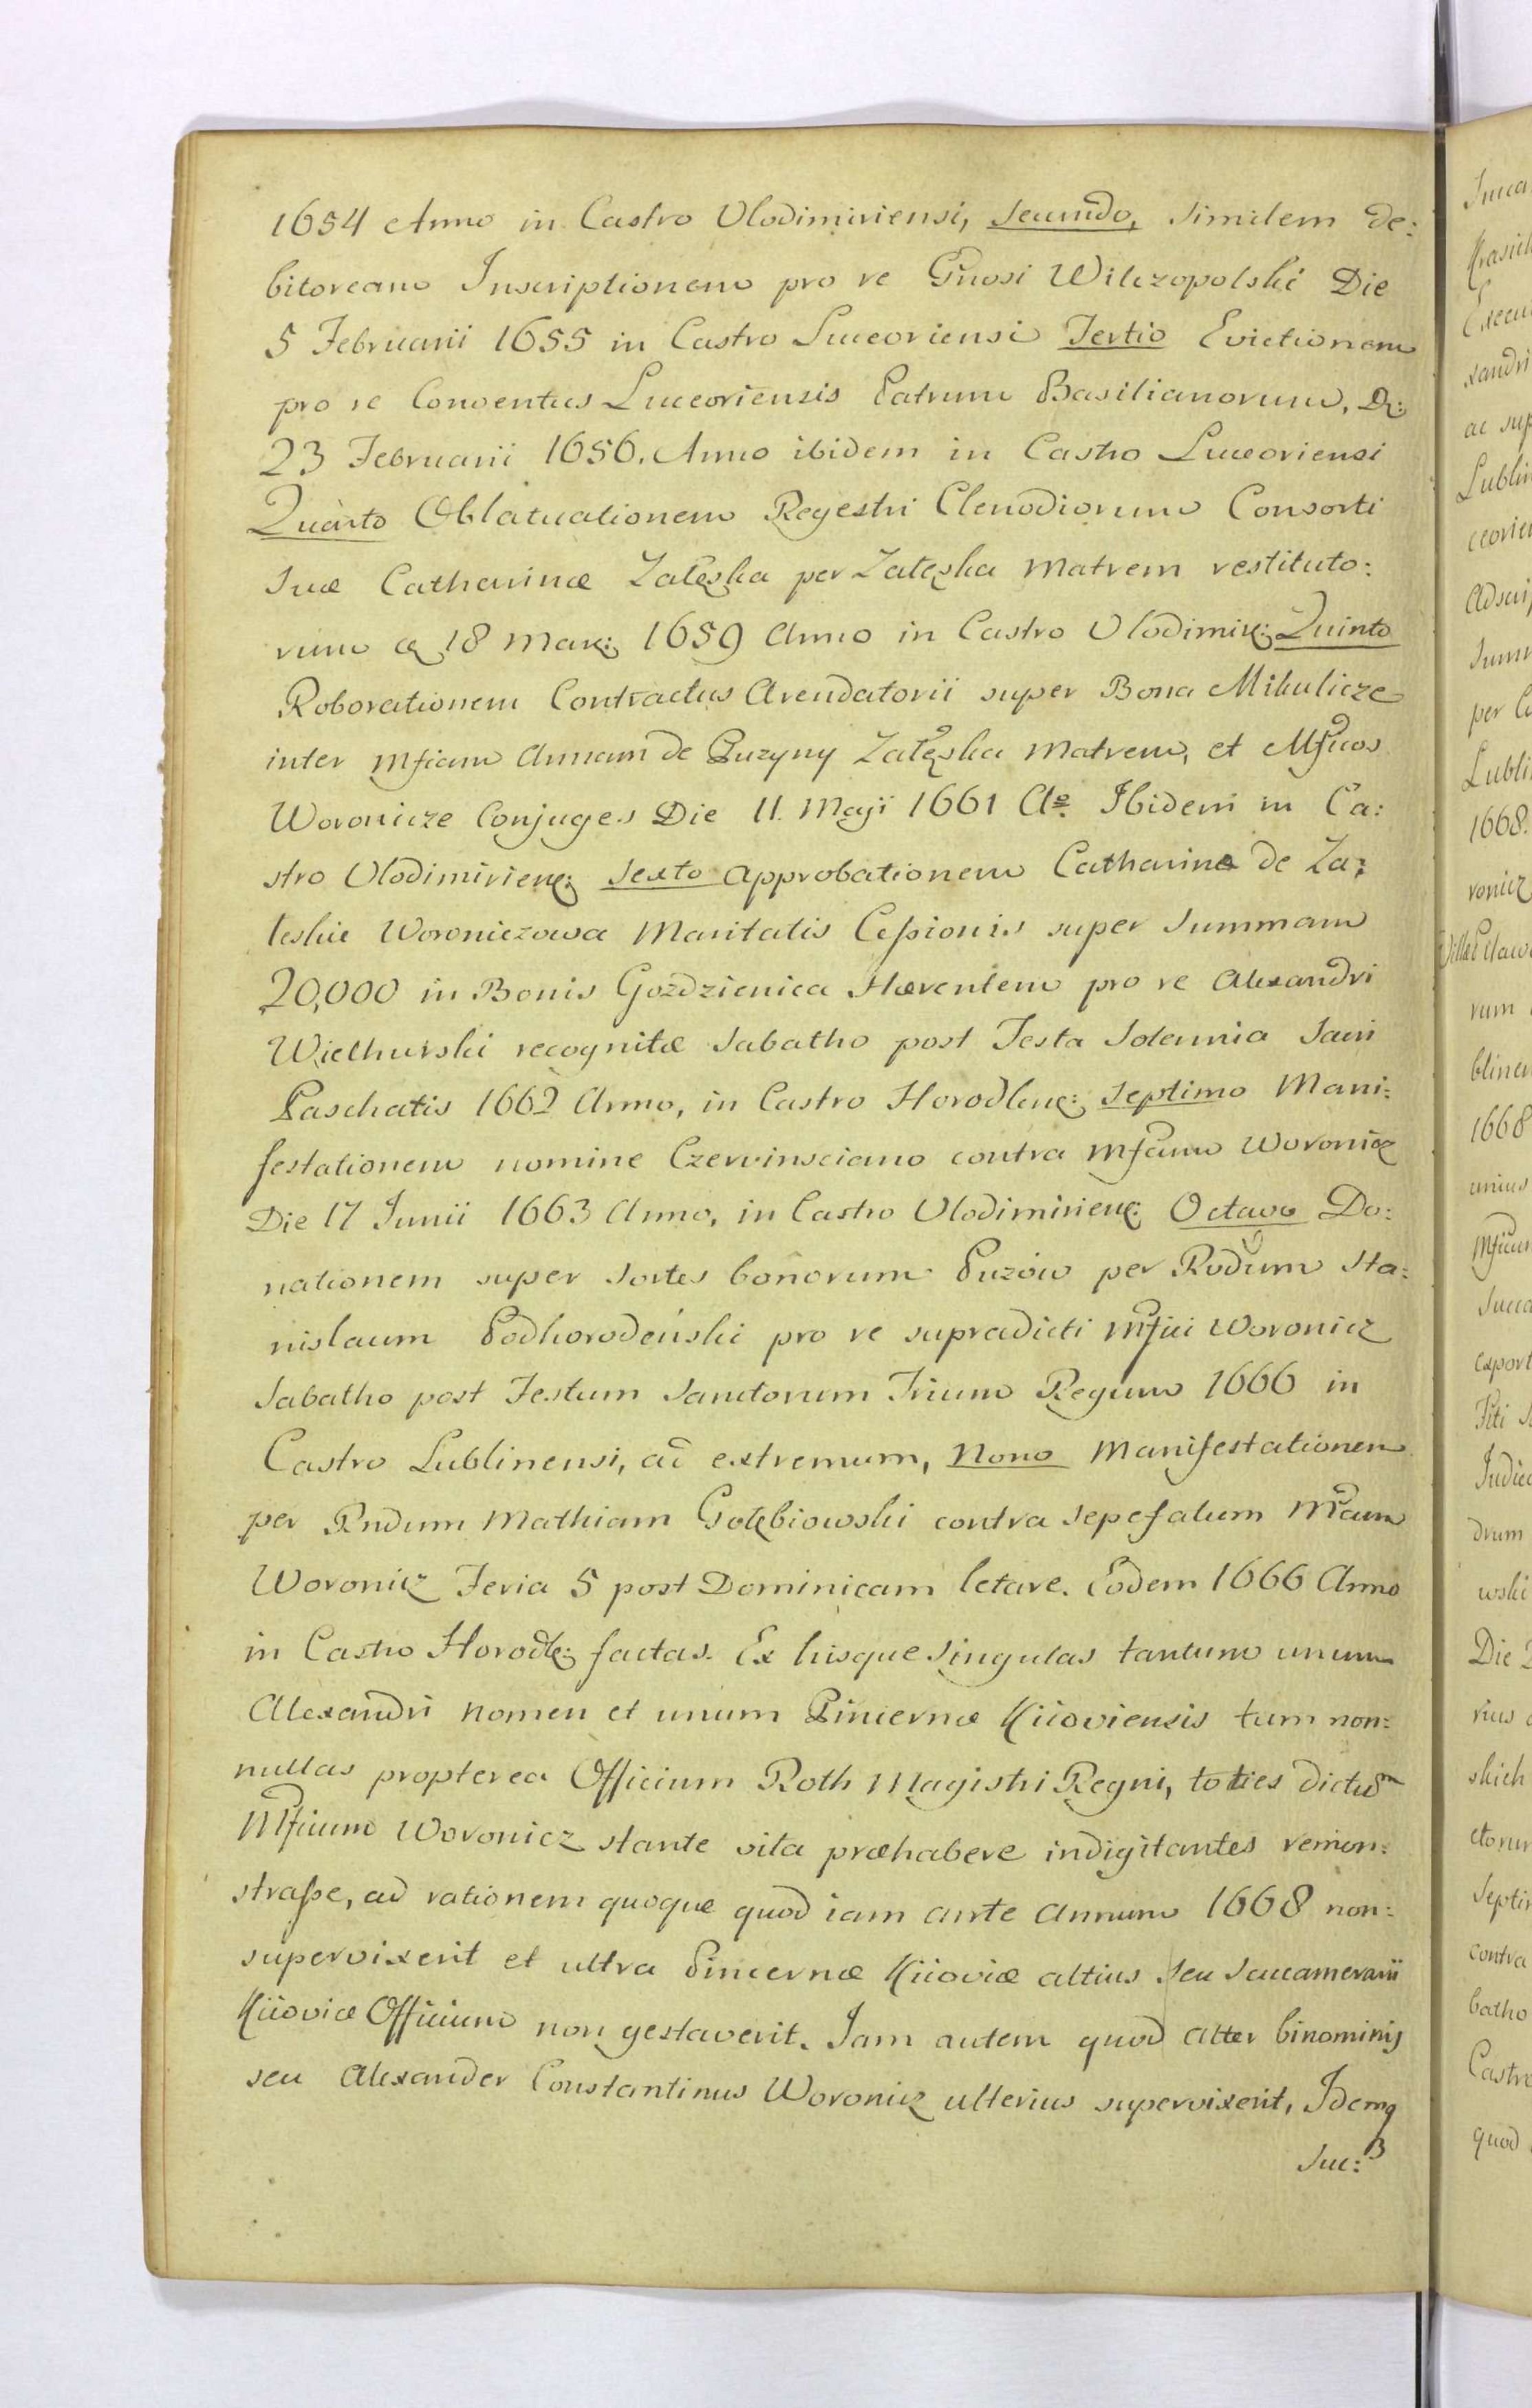 1654 Anno in Castro Vlodimiriensi, secundo, similem de:
bitoream Inscriptionem pro re Gnosi Wilczopolski Die
5 Februarii 1655 in Castro Luceoriensi Tertio Evictionem
pro re Conventus Luceoriensis Patrum Basilianorum, D:
23 Februarii 1656. Anno ibidem in Castro Luceoriensi
Quarto Oblatuationem Regestri Clenodiorum Consorti
suæ Catharinæ Załęska per Załęska Matrem restituto:
rum 18 Mar: 1659 Anno in Castro Vlodimir: Quinto
Roborationem Contractus Arendatorii super Bona Mikulicze
inter Mficam Annam de Puzyny Załęska Matrem, et Mficos
Woronicze Conjuges Die 11. Maji 1661 Ao. Ibidem in Ca:
stro Vlodimirien: Sexto Approbationem Catharina de Za:
leskie Woroniczowa Maritalis Cessionis super summam
20,000 in Bonis Goździenica Hærentem pro re Alexandri
Wielhurski recognitæ Sabatho post Festa Solennia Sacri
Paschatis 1662 Anno, in Castro Horodlen: Septimo Mani:
festationem nomine Czerwinsciano contra Mfcum Woronicz
Die 17 Junii 1663 Anno, in Castro Vlodimirien: Octavo Do:
nationem super sortes bonorum Puzow per Rndum Sta:
nislaum Podhorodeński pro re supradicti Mfici Woronicz
Sabatho post Festum Sanctorum Trium Regum 1666 in
Castro Lublinensi, ad extremum, Nono Manifestationem
per Rndum Mathiam Gołębiowski contra sepefatum Mfcum
Woronicz Feria 5 post Dominicam letare. Eodem 1666 Anno
in Castro Horodl: factas. Ex hisque singulas tantum unum
Alexandri nomen et unum Pincernæ Kiioviensis tum non:
nullas propterea Officium Roth Magistri Regni, toties dictum
Mficum Woronicz stante vita præhabere indigitantes remon:
strasse, ad rationem quoque quod iam ante Annum 1668 non:
supervixerit et ultra Pincernæ Kiioviæ altius seu Succamerarii
Kiioviæ Officium non gestaverit. Jam autem quod alter binominis
seu Alexander Constantinus Woronicz ulterius supervixerit, Idemq
Suc: